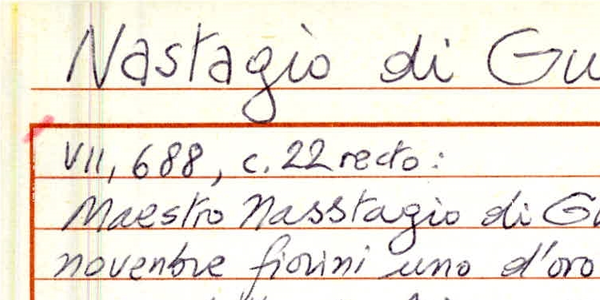 Nastagio di Gu
VII, 688, c. 22 recto:
Maestro Nasstagio di Gu
novenbre fiorini uno d'oro